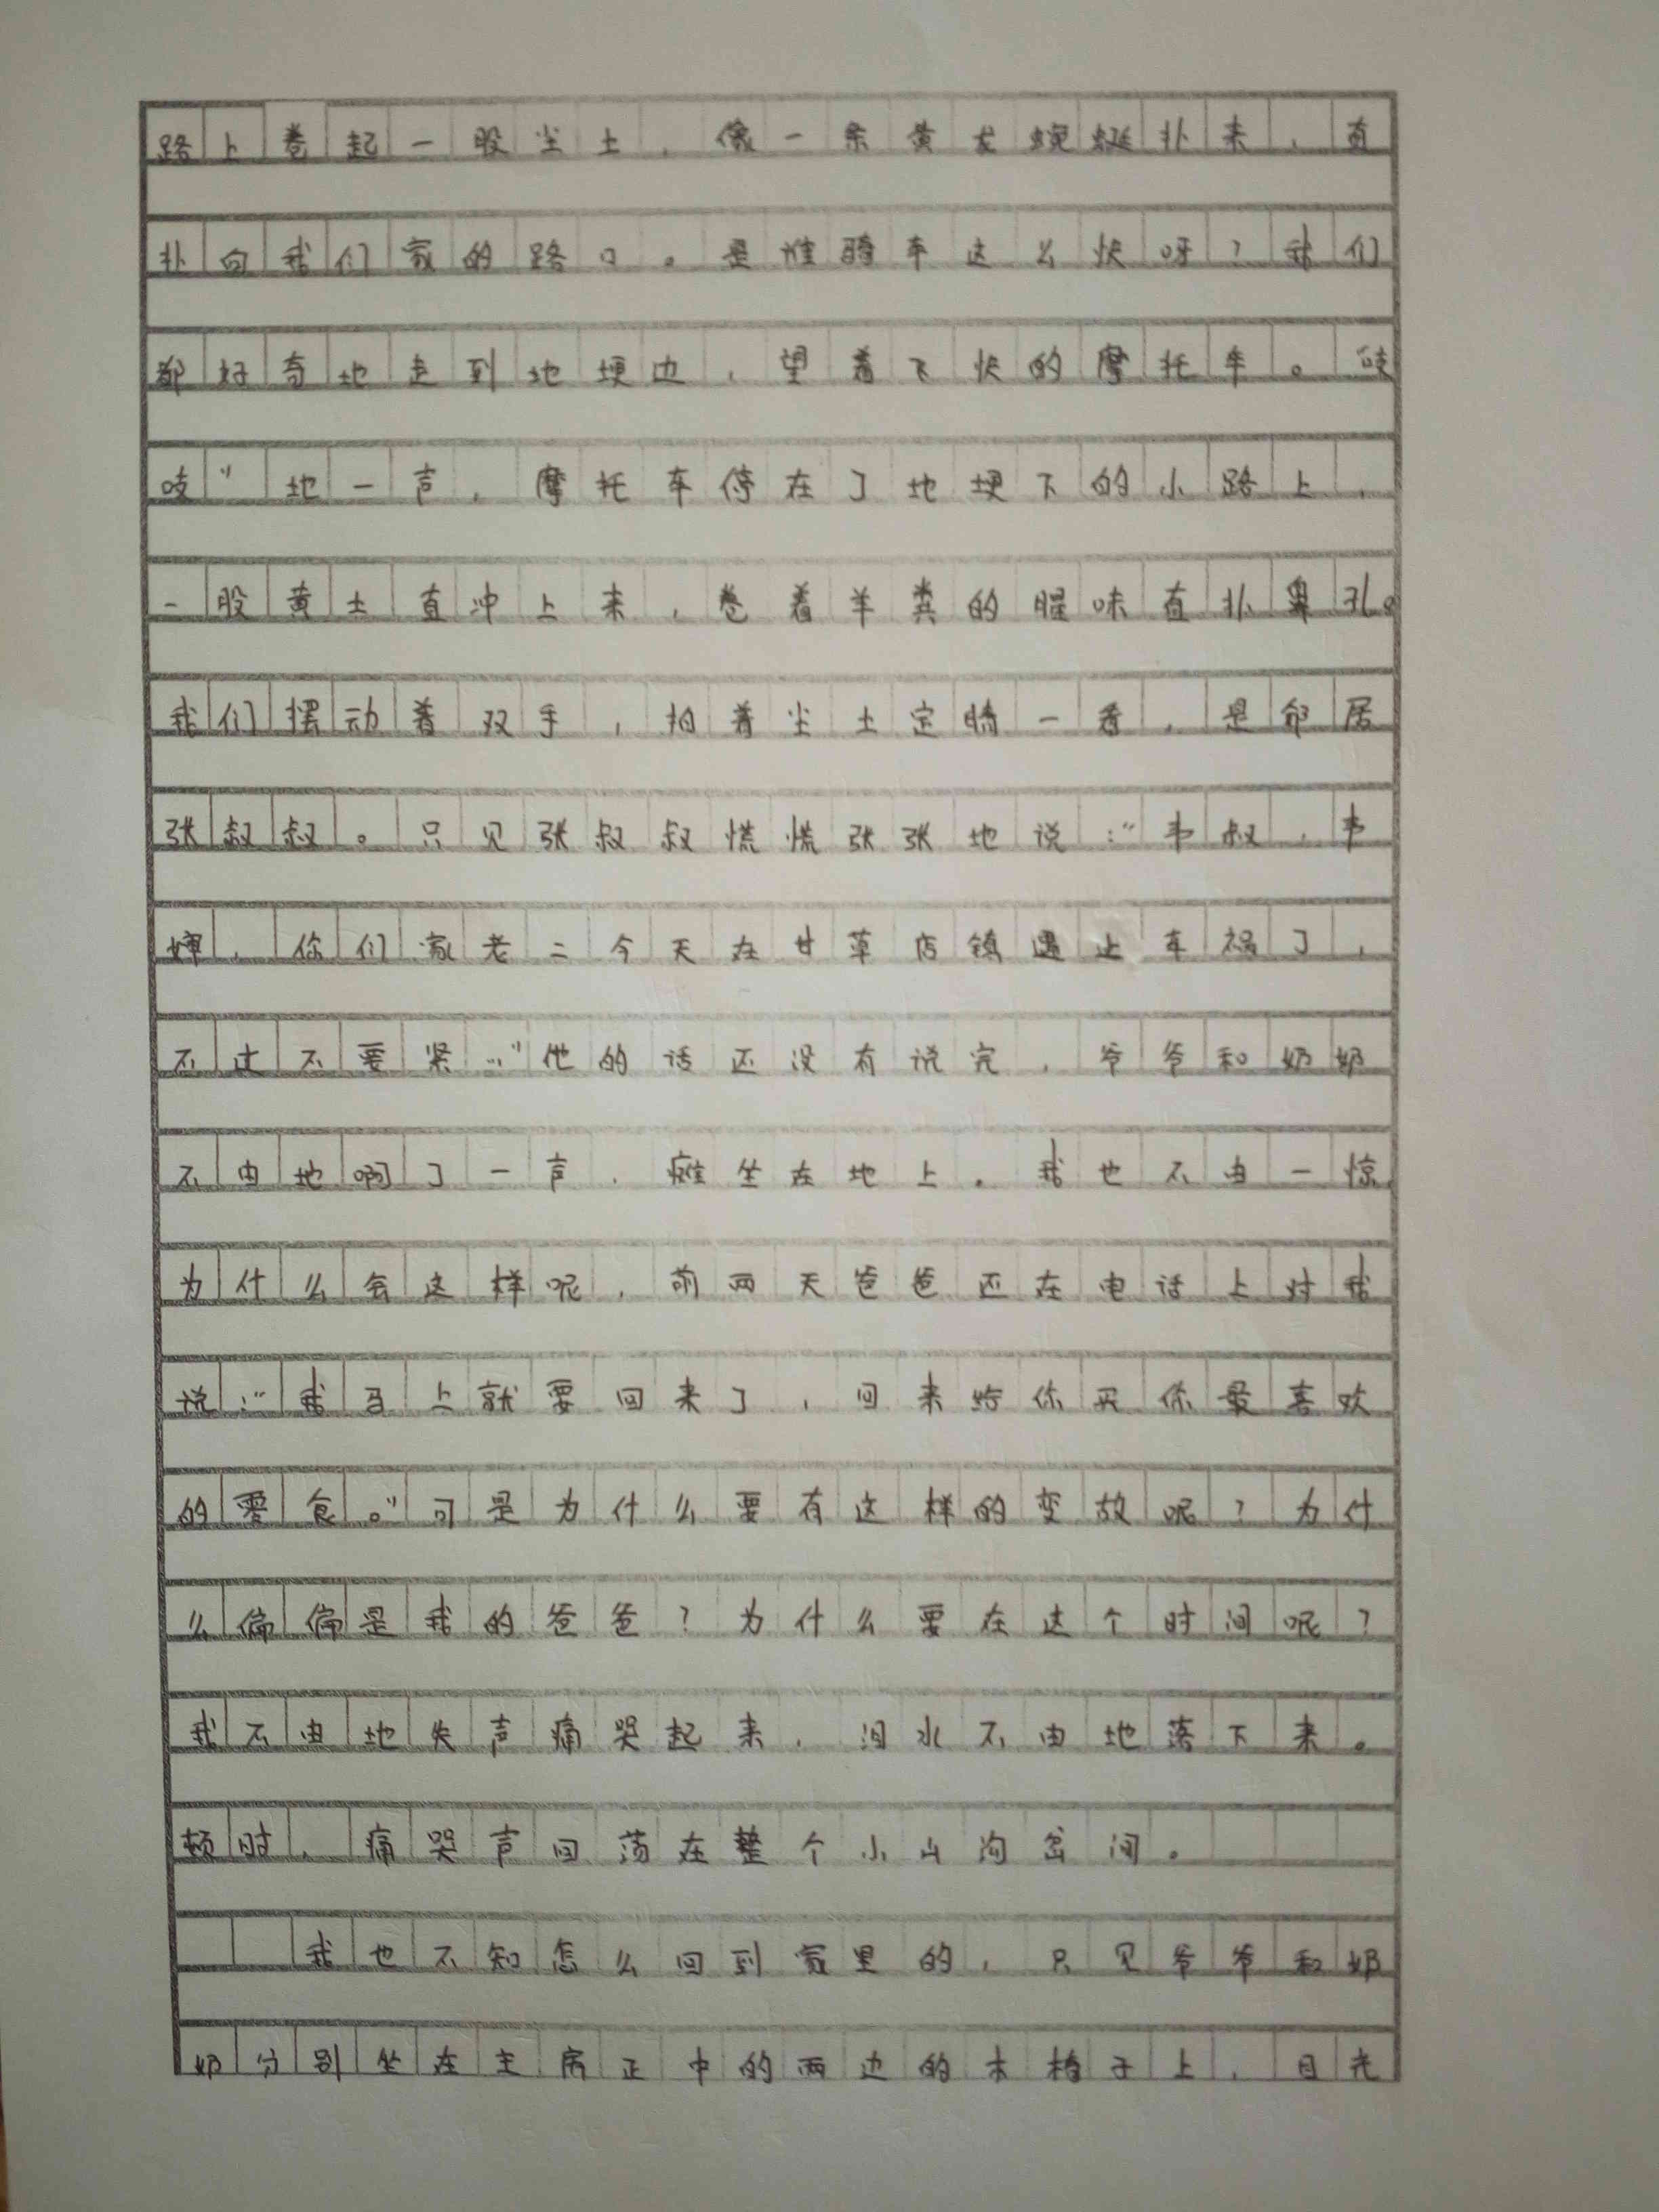 路上卷起一股尘土，像一条黄龙蜿蜒扑来，直
扑向我们家的路口。是谁骑车这么快呀？我们
都好奇地走到地埂边，望着飞快的摩托车。“吱
吱”地一声，摩托车停在了地埂下的小路上，
一股黄土直冲上来，卷着羊粪的腥味直扑鼻孔。
我们摆动着双手，拍着尘土定睛一看，是邻居
张叔叔。只见张叔叔慌慌张张地说：“韦叔，韦
婶，你们家老二今天在甘草店镇遇上车祸了，
不过不要紧…”他的话还没有说完，爷爷和奶奶
不由地啊了一声，瘫坐在地上。我也不由一惊
为什么会这样呢，前两天爸爸还在电话上对我
说：“我马上就要回来了，回来给你买你最喜欢
的零食。”可是为什么要有这样的变故呢？为什
么偏偏是我的爸爸？为什么要在这个时间呢？
我不由地失声痛哭起来，泪水不由地落下来。
顿时，痛哭声回荡在整个小山沟岔间。
我也不知怎么回到家里的，只见爷爷和奶
奶分别坐在主房正中的两边的木椅子上，目光